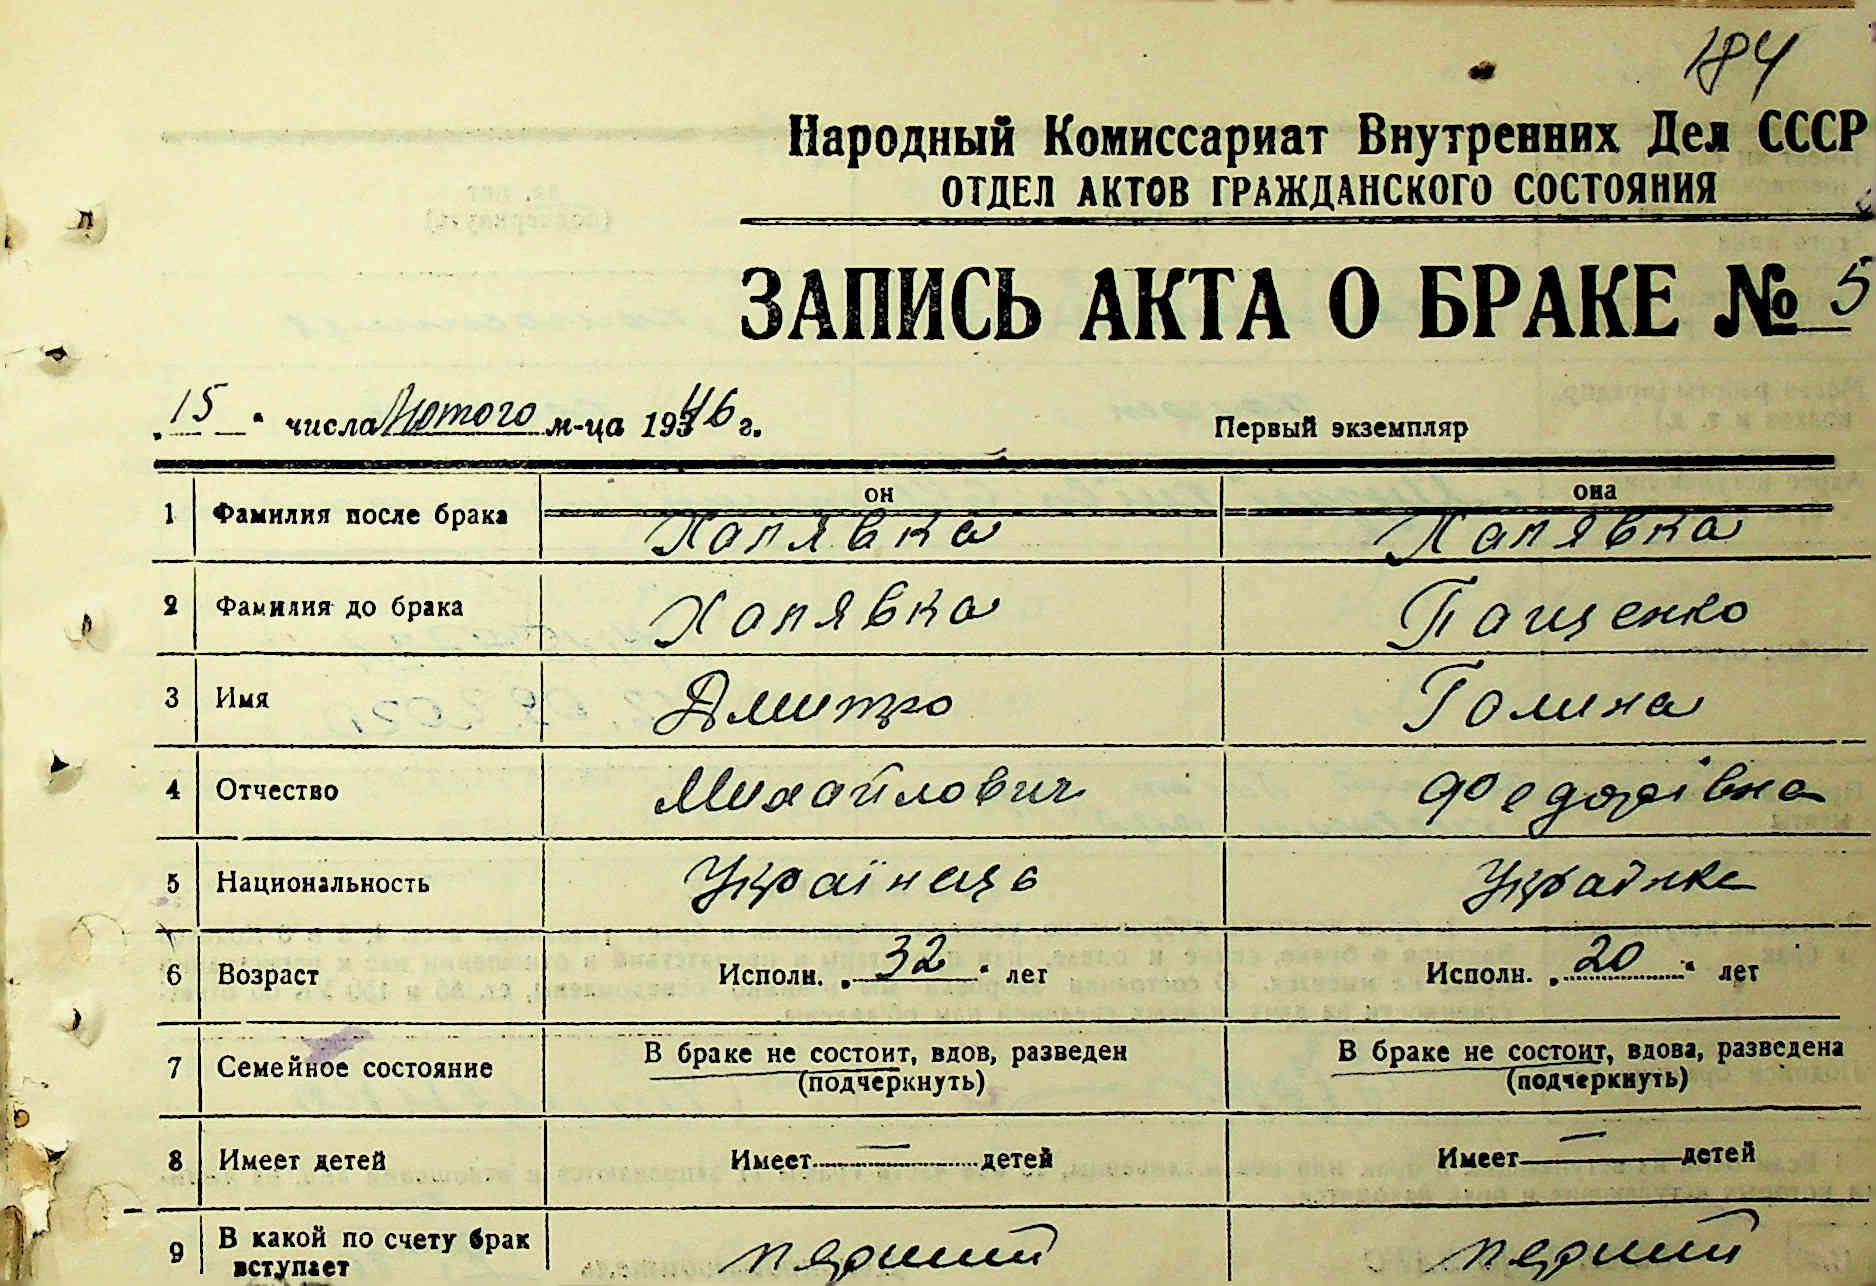 184
Народный Комиссариат Внутренних Дел СССР
ОТДЕЛ АКТОВ ГРАЖДАНСКОГО СОСТОЯНИЯ
ЗАПИСЬ АКТА О БРАКЕ № 5
„15" числа Лютого м-ца 1946 г.
Первый экземпляр
он она
1 Фамилия после брака Халявка Халявка
2 Фамилия до брака Халявка Пащенко
3 Имя Дмитро Галина
4 Отчество Михайлович Федорівна
5 Национальность Українець Українка
6 Возраст Исполн. „32" лет Исполн. „20" лет
7 Семейное состояние В браке не состоит, вдов, разведен В браке не состоит, вдова, разведена
(подчеркнуть) (подчеркнуть)
8 Имеет детей Имеет — детей Имеет — детей
9 В какой по счету брак вступает перший перший